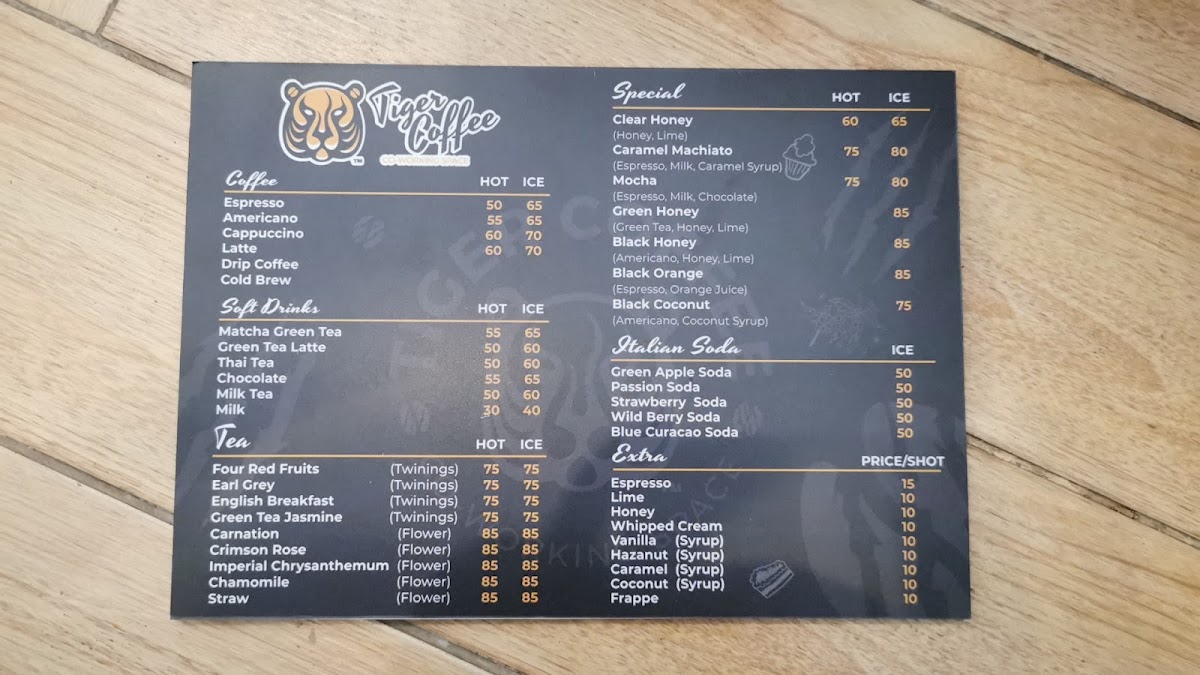 Tiger
Coffee
CO-WORKING SPACE
TM
Coffee HOT ICE
Espresso 50 65
Americano 55 65
Cappuccino 60 70
Latte 60 70
Drip Coffee
Cold Brew
Soft Drinks HOT ICE
Matcha Green Tea 55 65
Green Tea Latte 50 60
Thai Tea 50 60
Chocolate 55 65
Milk Tea 50 60
Milk 30 40
Tea HOT ICE
Four Red Fruits (Twinings) 75 75
Earl Grey (Twinings) 75 75
English Breakfast (Twinings) 75 75
Green Tea Jasmine (Twinings) 75 75
Carnation (Flower) 85 85
Crimson Rose (Flower) 85 85
Imperial Chrysanthemum (Flower) 85 85
Chamomile (Flower) 85 85
Straw (Flower) 85 85
Special HOT ICE
Clear Honey 60 65
(Honey, Lime)
Caramel Machiato 75 80
(Espresso, Milk, Caramel Syrup)
Mocha 75 80
(Espresso, Milk, Chocolate)
Green Honey 85
(Green Tea, Honey, Lime)
Black Honey 85
(Americano, Honey, Lime)
Black Orange 85
(Espresso, Orange Juice)
Black Coconut 75
(Americano, Coconut Syrup)
Italian Soda ICE
Green Apple Soda 50
Passion Soda 50
Strawberry Soda 50
Wild Berry Soda 50
Blue Curacao Soda 50
Extra PRICE/SHOT
Espresso 15
Lime 10
Honey 10
Whipped Cream 10
Vanilla (Syrup) 10
Hazanut (Syrup) 10
Caramel (Syrup) 10
Coconut (Syrup) 10
Frappe 10